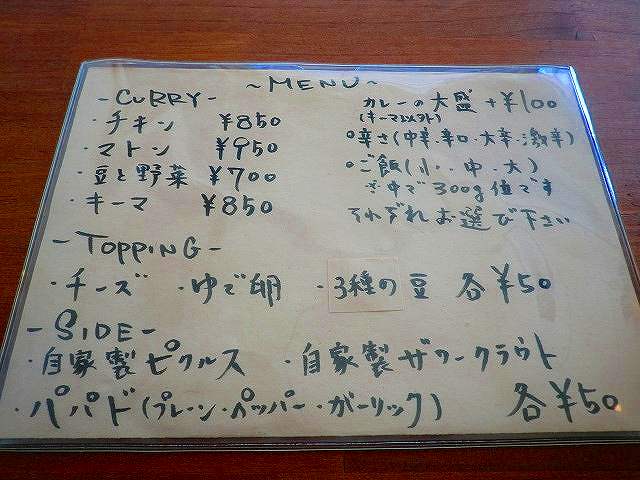 ~MENU~
-CURRY-
・チキン ¥850
・マトン ¥950
・豆と野菜 ¥700
・キーマ ¥850
カレーの大盛 +¥100
(キーマ以外)
○辛さ(中辛・辛口・大辛・激辛)
○ご飯(小・中・大)
※中で300g位です
それぞれお選び下さい
-TOPPING-
・チーズ ・ゆで卵 ・3種の豆 各¥50
-SIDE-
・自家製ピクルス ・自家製ザワークラウト
・パパド(プレーン・ペッパー・ガーリック) 各¥50